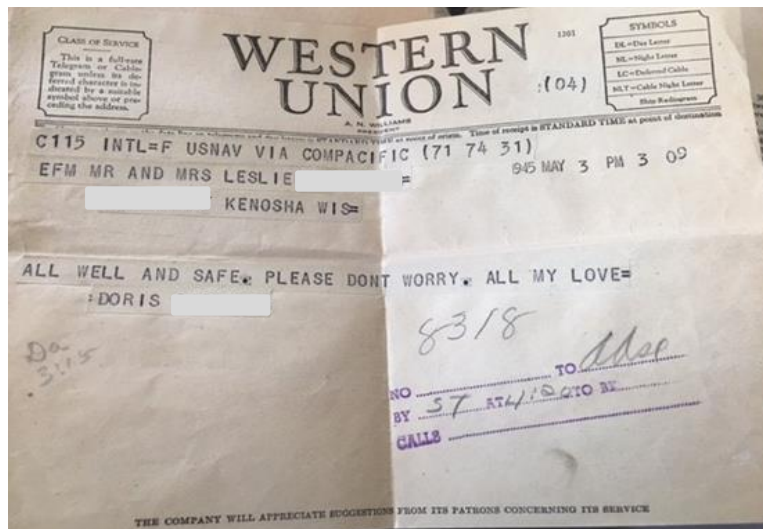 CLASS OF SERVICE
This is a full-rate
Telegram or Cable-
gram unless its de-
ferred character is in-
dicated by a suitable
symbol above or pre-
ceding the address.
WESTERN
UNION
A. N. WILLIAMS
PRESIDENT
1201
(04)
SYMBOLS
DL=Day Letter
NL=Night Letter
LC=Deferred Cable
NLT=Cable Night Letter
Ship Radiogram
STANDARD TIME at point of origin. Time of receipt is STANDARD TIME at point of destination
C115 INTL=F USNAV VIA COMPACIFIC (71 74 31)
1945 MAY 3 PM 3 09
EFM MR AND MRS LESLIE =
KENOSHA WIS=
ALL WELL AND SAFE. PLEASE DONT WORRY. ALL MY LOVE=
:DORIS
8318
Da
3:15
NO TO
BY ST AT 4:20 TO BE
CALLS
THE COMPANY WILL APPRECIATE SUGGESTIONS FROM ITS PATRONS CONCERNING ITS SERVICE